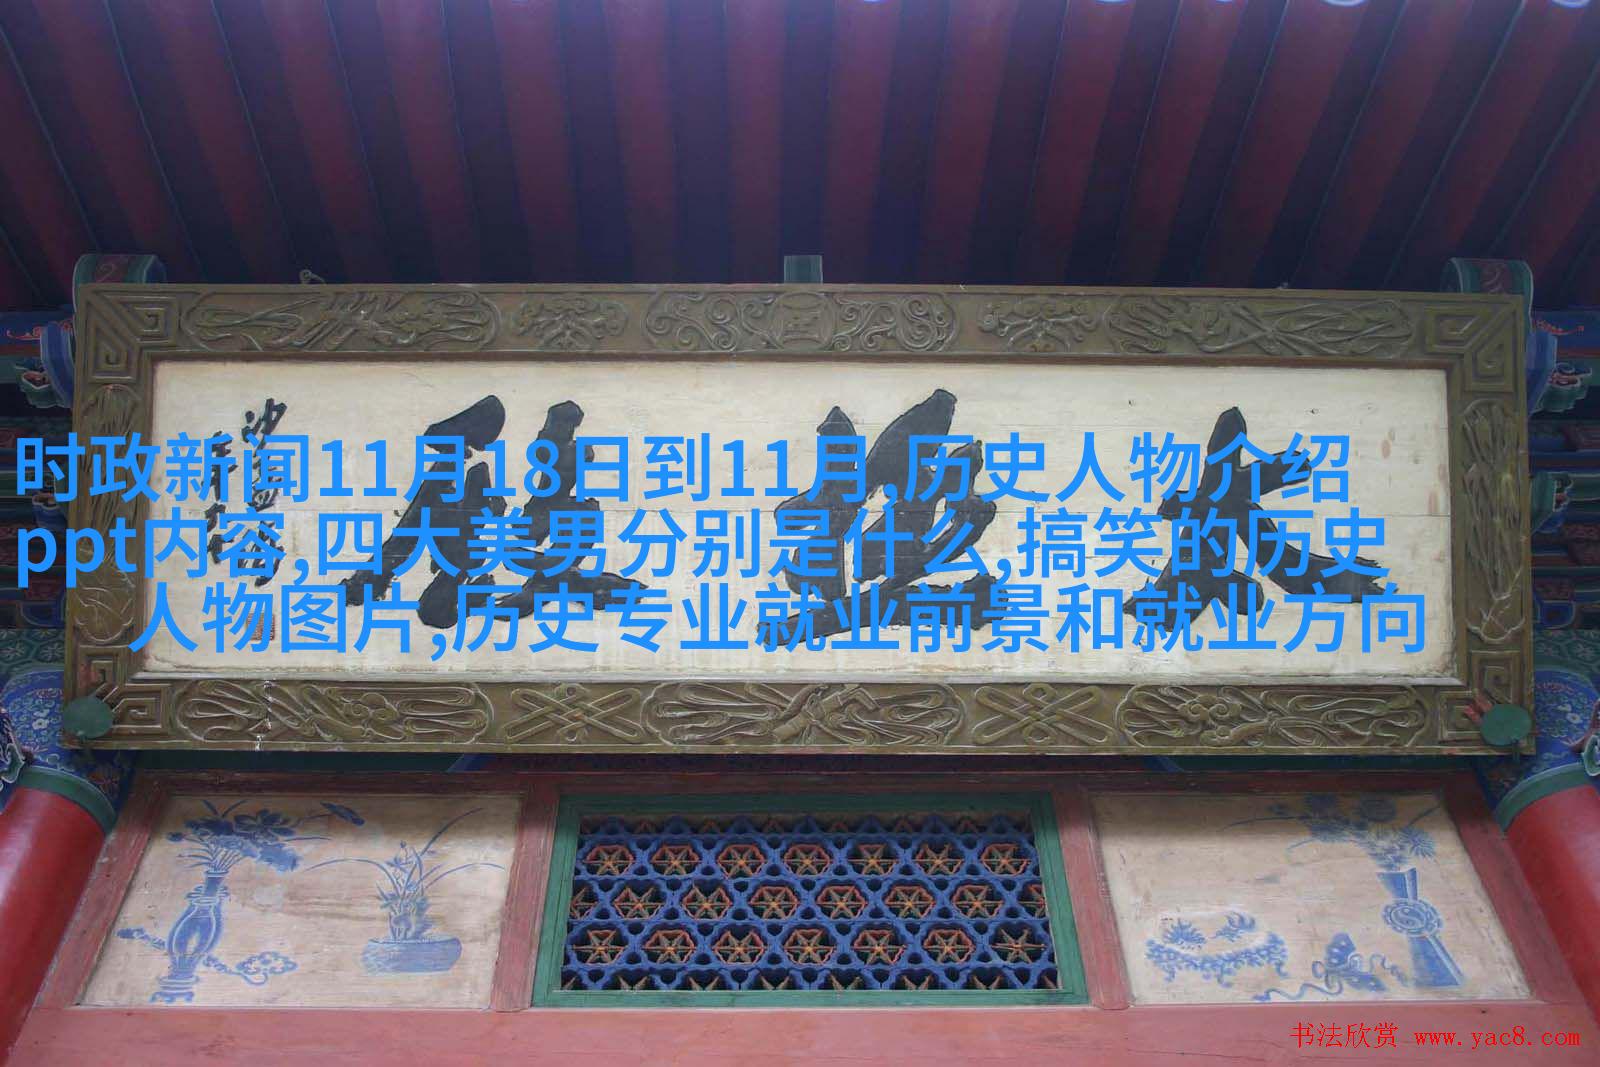 时政新闻11月18日到11月,历史人物介绍
ppt内容,四大美男分别是什么,搞笑的历史
人物图片,历史专业就业前景和就业方向
书法欣赏 www.yac8.com